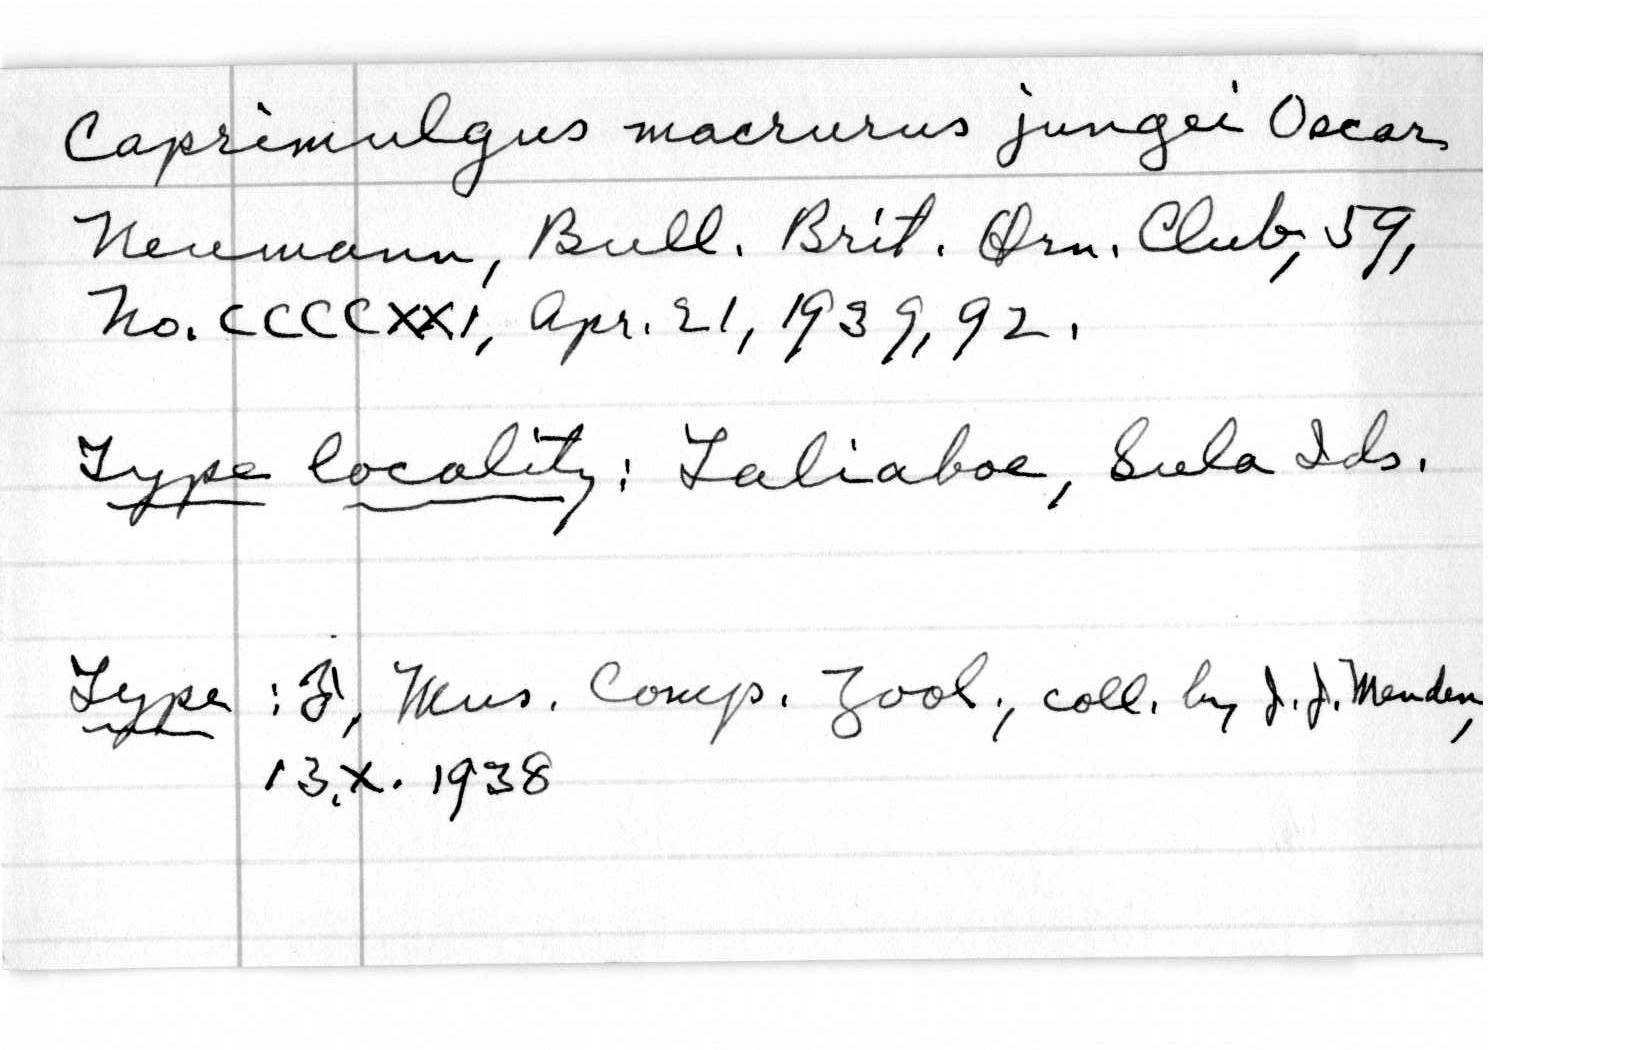 Caprimulgus macrurus jungei Oscar
Neumann, Bull. Brit. Orn. Club, 59,
No. CCCCXXI, Apr. 21, 1939, 92.
Type locality: Taliaboe, Sula Ids.
Type : Mus. Comp. Zool., coll. by J. J. Menden,
13.X. 1938